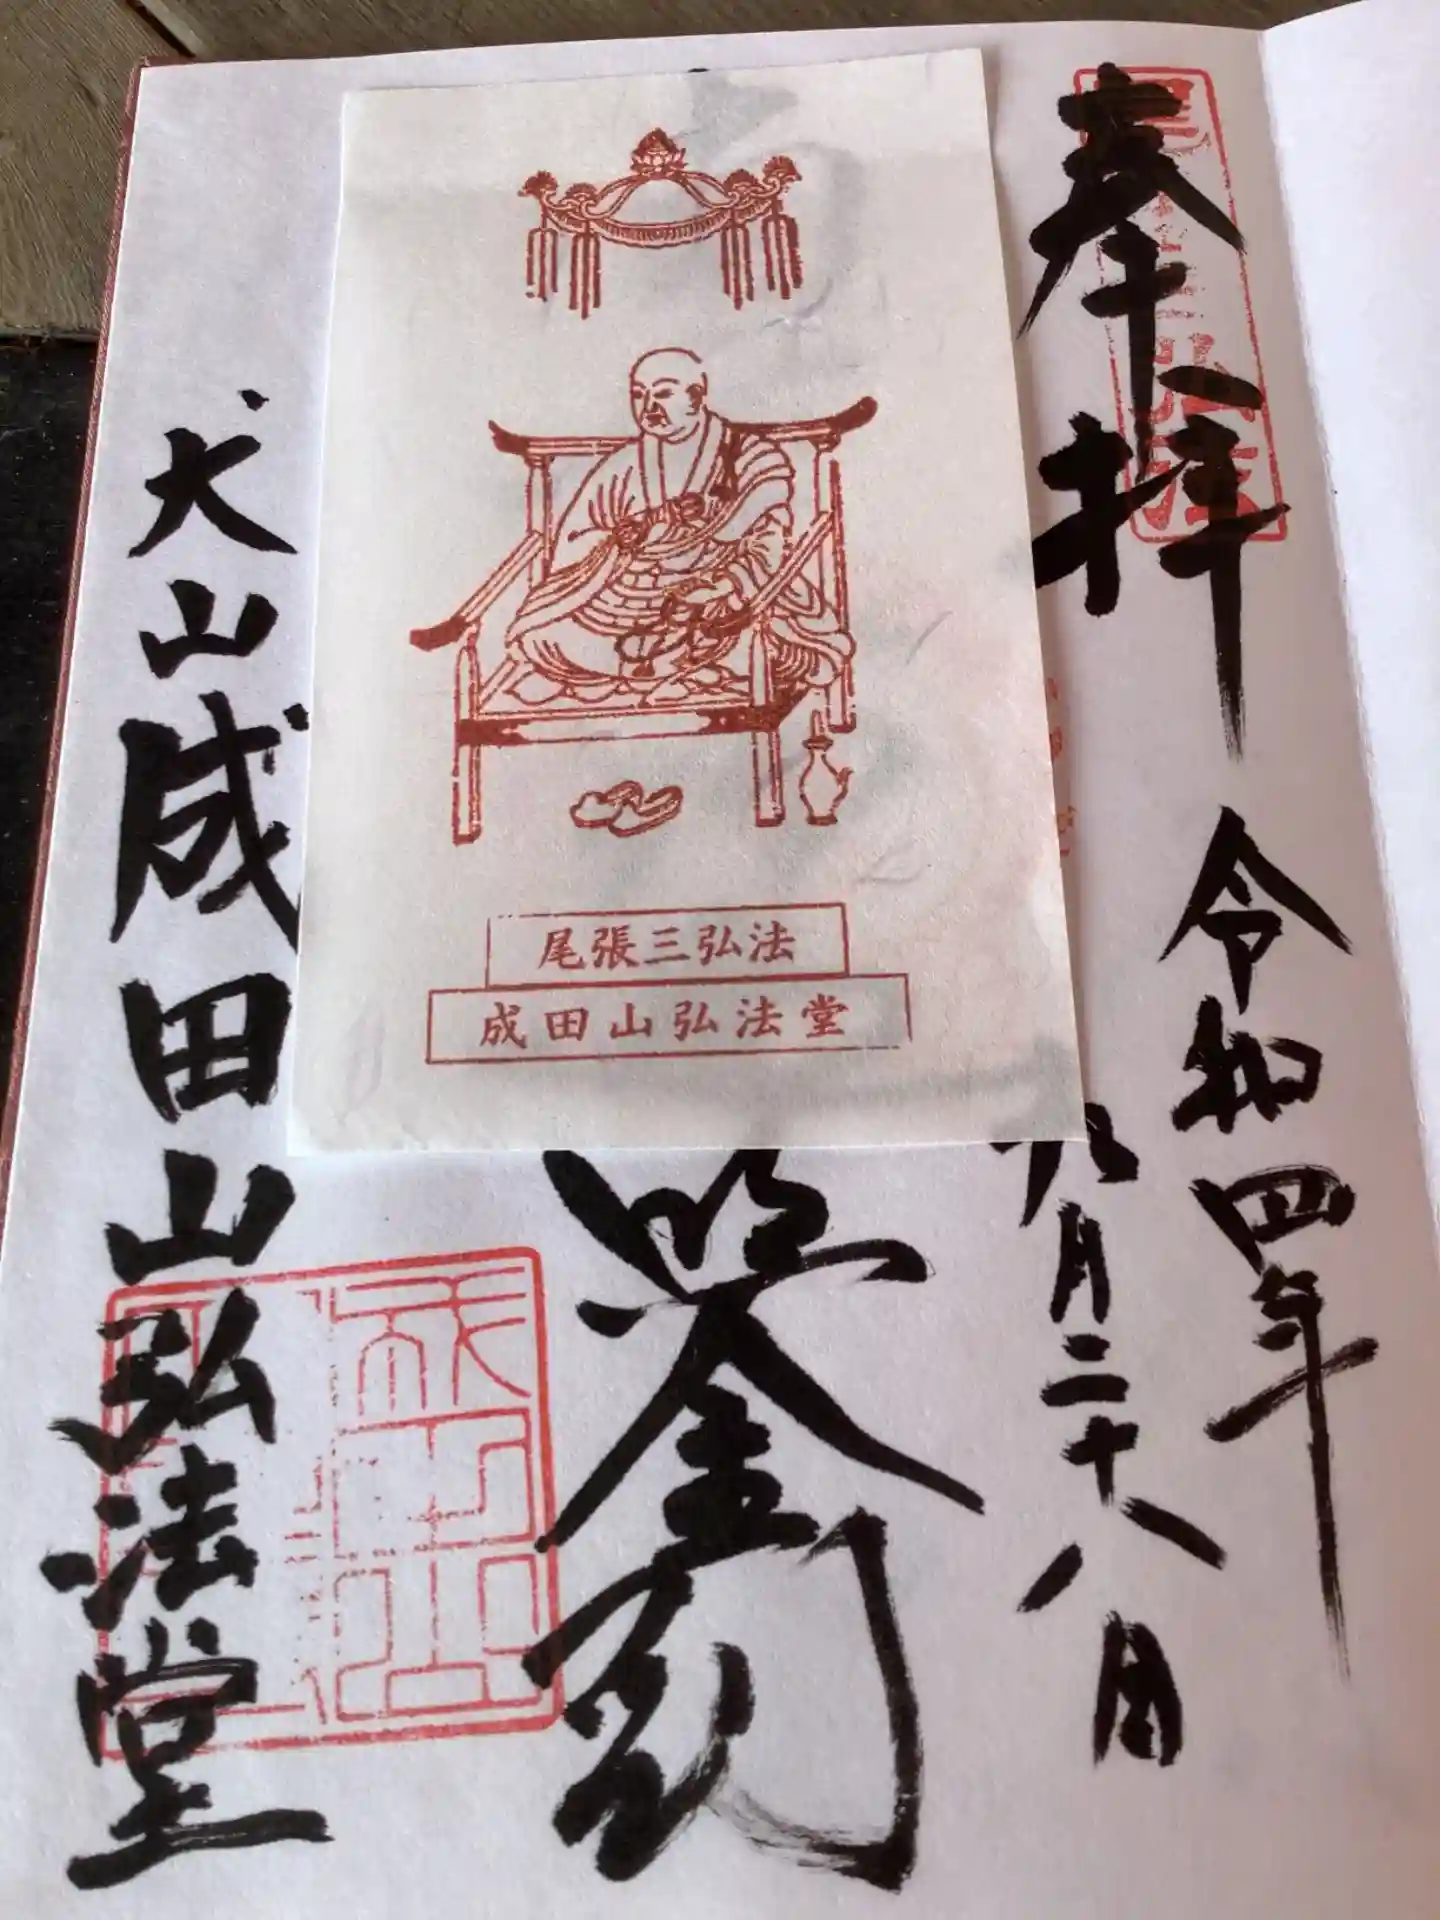 奉拝
令和四年
九月二十八日
照金剛
犬山成田山弘法堂
尾張三弘法
成田山弘法堂
成田山